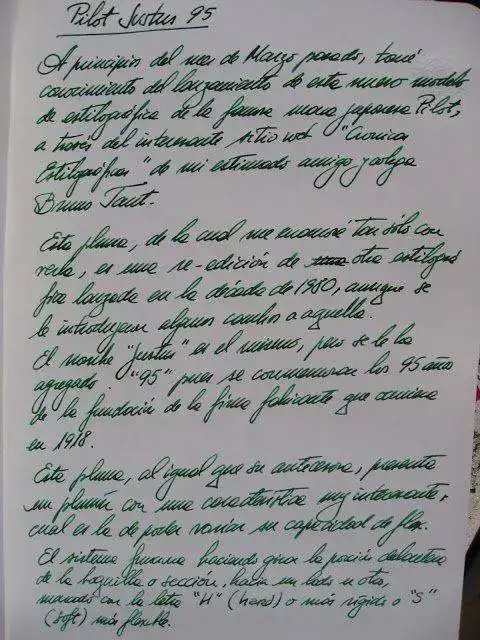 Pilot Justus 95
A principios del mes de Marzo pasado, tomé
conocimiento del lanzamiento de este nuevo modelo
de estilográfica de la famosa marca japonesa Pilot,
a través del interesante sitio web "Cronicas
Estilográficas" de mi estimado amigo y colega
Bruno Taut.
Esta pluma, de la cual me enamoré tan sólo con
verla, es una re-edición de otra estilográ
fica lanzada en la década de 1980, aunque se
le introdujeron algunos cambios a aquella.
El nombre "Justus" es el mismo, pero se le ha
agregado "95" pues se conmemoran los 95 años
de la fundación de la firma fabricante que comienza
en 1918.
Esta pluma, al igual que su antecesora, presenta
un plumín con una característica muy interesante,
cual es la de poder variar su capacidad de flex.
El sistema funciona haciendo girar la porción delantera
de la boquilla o sección, hacia un lado u otro,
marcado con la letra "H" (hard) o más rígido o "S"
(soft) más flexible.